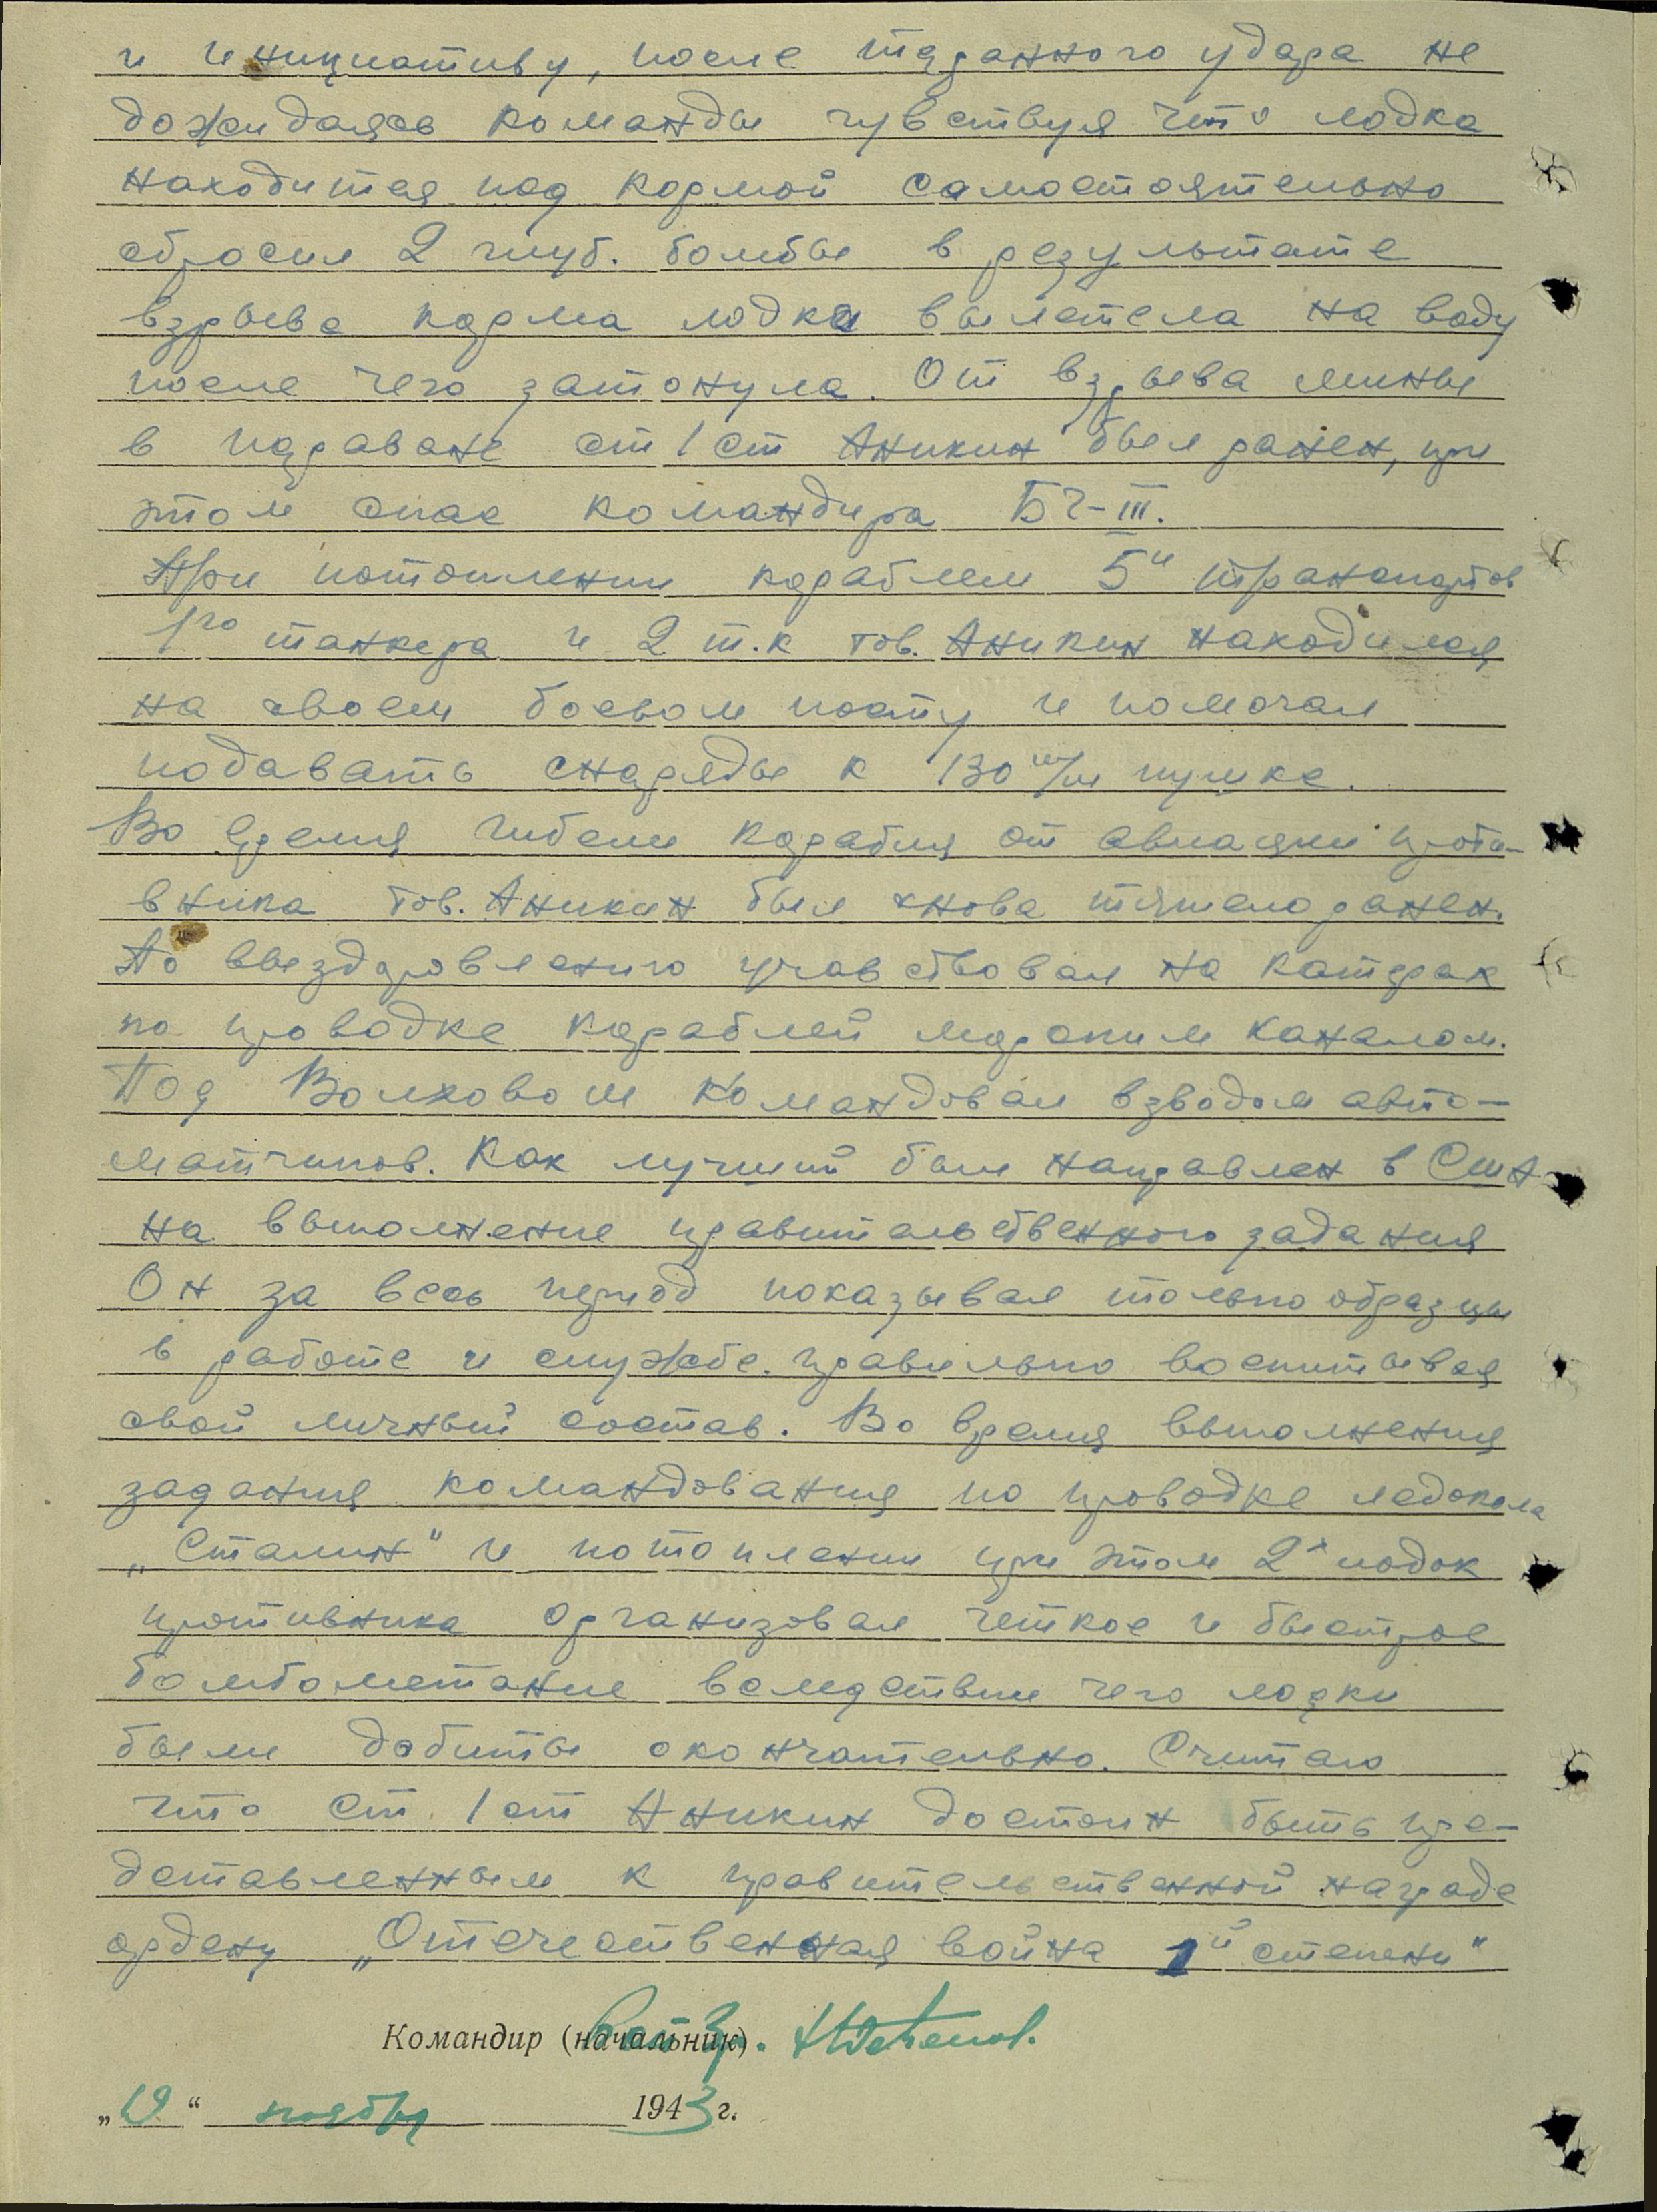 и инициативу, после таранного удара не
дожидаясь команды чувствуя что лодка
находится под кормой самостоятельно
сбросил 2 глуб. бомбы в результате
взрыва корма лодки вылетела на воду
после чего затонула. От взрыва мины
в параване ст 1 ст Аникин был ранен, при
этом спас командира БЧ-III.
При потоплении кораблем 5и транспортов
1го танкера и 2 т.к тов. Аникин находился
на своем боевом посту и помогал
подавать снаряды к 130 м/м пушке.
Во время гибели корабля от авиации проти-
вника тов. Аникин был снова тяжело ранен.
По выздоровлению учавствовал на катерах
по проводке кораблей морским каналом.
Под Волховом командовал взводом авто-
матчиков. Как лучший был направлен в СшА
на выполнение правительственного задания
Он за весь период показывал только образцы
в работе и службе. правильно воспитывая
свой личный состав. Во время выполнения
задания командования по проводке ледокола
„Сталин" и потоплении при этом 2х лодок
противника организовал четкое и быстрое
бомбометание вследствии чего лодки
были добиты окончательно. Считаю
что ст. 1 ст Аникин достоин быть пре-
дставленным к правительственной награде
ордену „Отечественная война 1й степени"
Командир (начальник)
„19" ноября 1943 г.